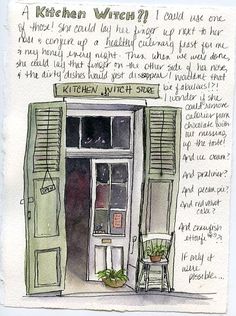 A KITCHEN WITCH?! I could use one
of those! She could lay her finger up next to her
nose & conjure up a healthy culinary feast for me
& my honey every night. Then when we were done,
she could lay that finger on the other side of her nose,
& the dirty dishes would just disappear! Wouldn't that
be fabulous?!
KITCHEN WITCH STORE
I wonder if she
could remove
calories from
chocolate with-
out messing
up the taste!
And ice cream?
And pralines?
And pecan pie?
And red velvet
cake?
OPEN
And crawfish
etouffe??
If only it
were
possible...